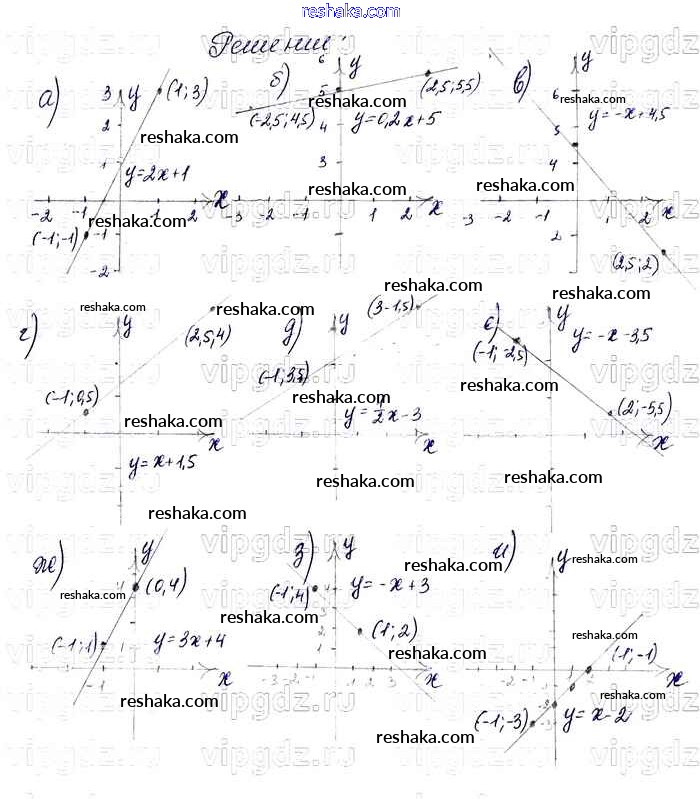 reshaka.com
Решение:
а) y (1; 3) y=2x+1 (-1;-1) x
3 2 1 -2 -1 1 2 -1 -2
б) y (-2,5; 4,5) (2,5; 5,5) y=0,2x+5 x
6 5 4 3 2 -3 -2 -1 1 2
в) y=-x+4,5 (2,5; 2) x
6 5 4 3 2 -3 -2 1 2
г) y (2,5; 4) (-1; 0,5) y=x+1,5 x
д) y (3 -1,5) (-1; 3,5) y=1/2x-3 x
е) y y=-x-3,5 (-1; -2,5) (2; -5,5) x
ж) y (0,4) (-1; 1) y=3x+4 x
4 -1
з) y y=-x+3 (-1; 4) (1; 2) x
-3 -2 -1 1 2 3
и) y (-1; -1) (-1; -3) y=x-2 x
-2 -1 1 2
vipgdz.ru
reshaka.com